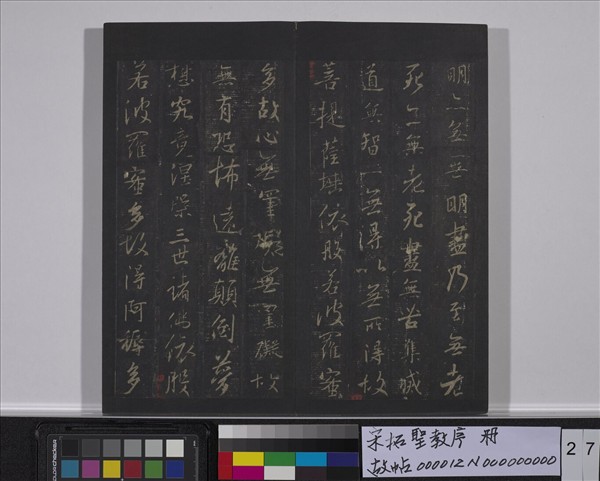 明亦無無明盡乃至無老
死亦無老死盡無苦集滅
道無智亦無得以無所得故
菩提薩埵依般若波羅蜜
多故心無罣礙無罣礙故
無有恐怖遠離顛倒夢
想究竟涅槃三世諸佛依般
若波羅蜜多故得阿耨多
宋拓聖教序 冊
故帖000012N000000000
27